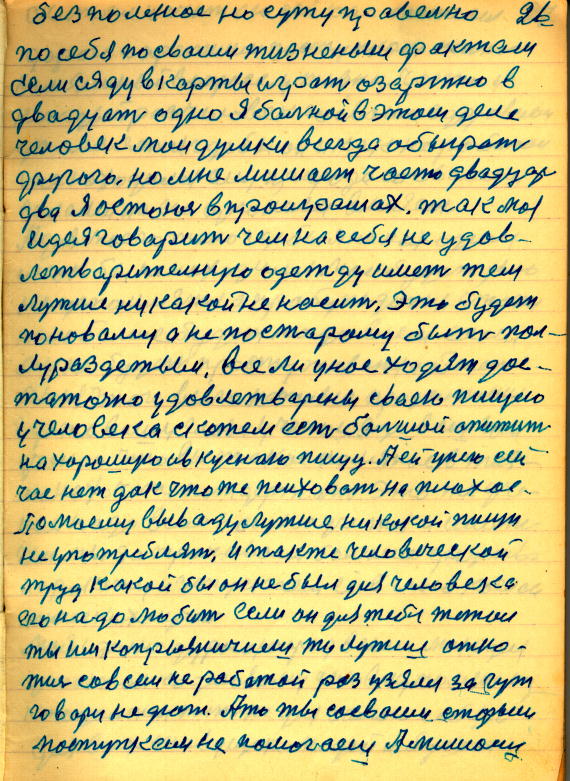 без полезное но суту правелно 26
по себя по сваим тизненым фрактам
если сяду в карты играт озартно в
двадцат одно я балной в этом деле
человек мои думки всегда обыграт
другого. но мне мишает часто двадцат
два я остоюс в проиграшах. так моя
идея говарит чем на себя не удов-
летварителную одетду имет тем
лутше никакой не носит. Это будет
по новаму а не по старому быт пол-
лураздетым, все ли у нас ходят дос-
таточно удовлетварены сваею пищею
у человека скотем ест балшой апитит
на харошую и вкусною пищу. А ей
час нет дак что же психоват на плохое.
По моему вываду лутше никокой пищи
не употреблят, и такте человеческой
труд какой бы он не был для человека
его надо любит если он для тебя тетол
ты им капрызничиеш то лутше
совсем не работой раз узялся за гут
говари не дют. А то ты соеваим старым
поступкам не помогаеш А мишаеш